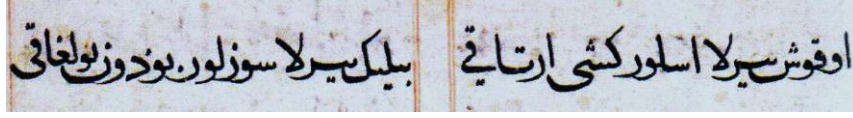 اوقوش بيرلا اسلور كشى ارتاقي بيليك بيرلا سوزلور بوذون بولغاقى